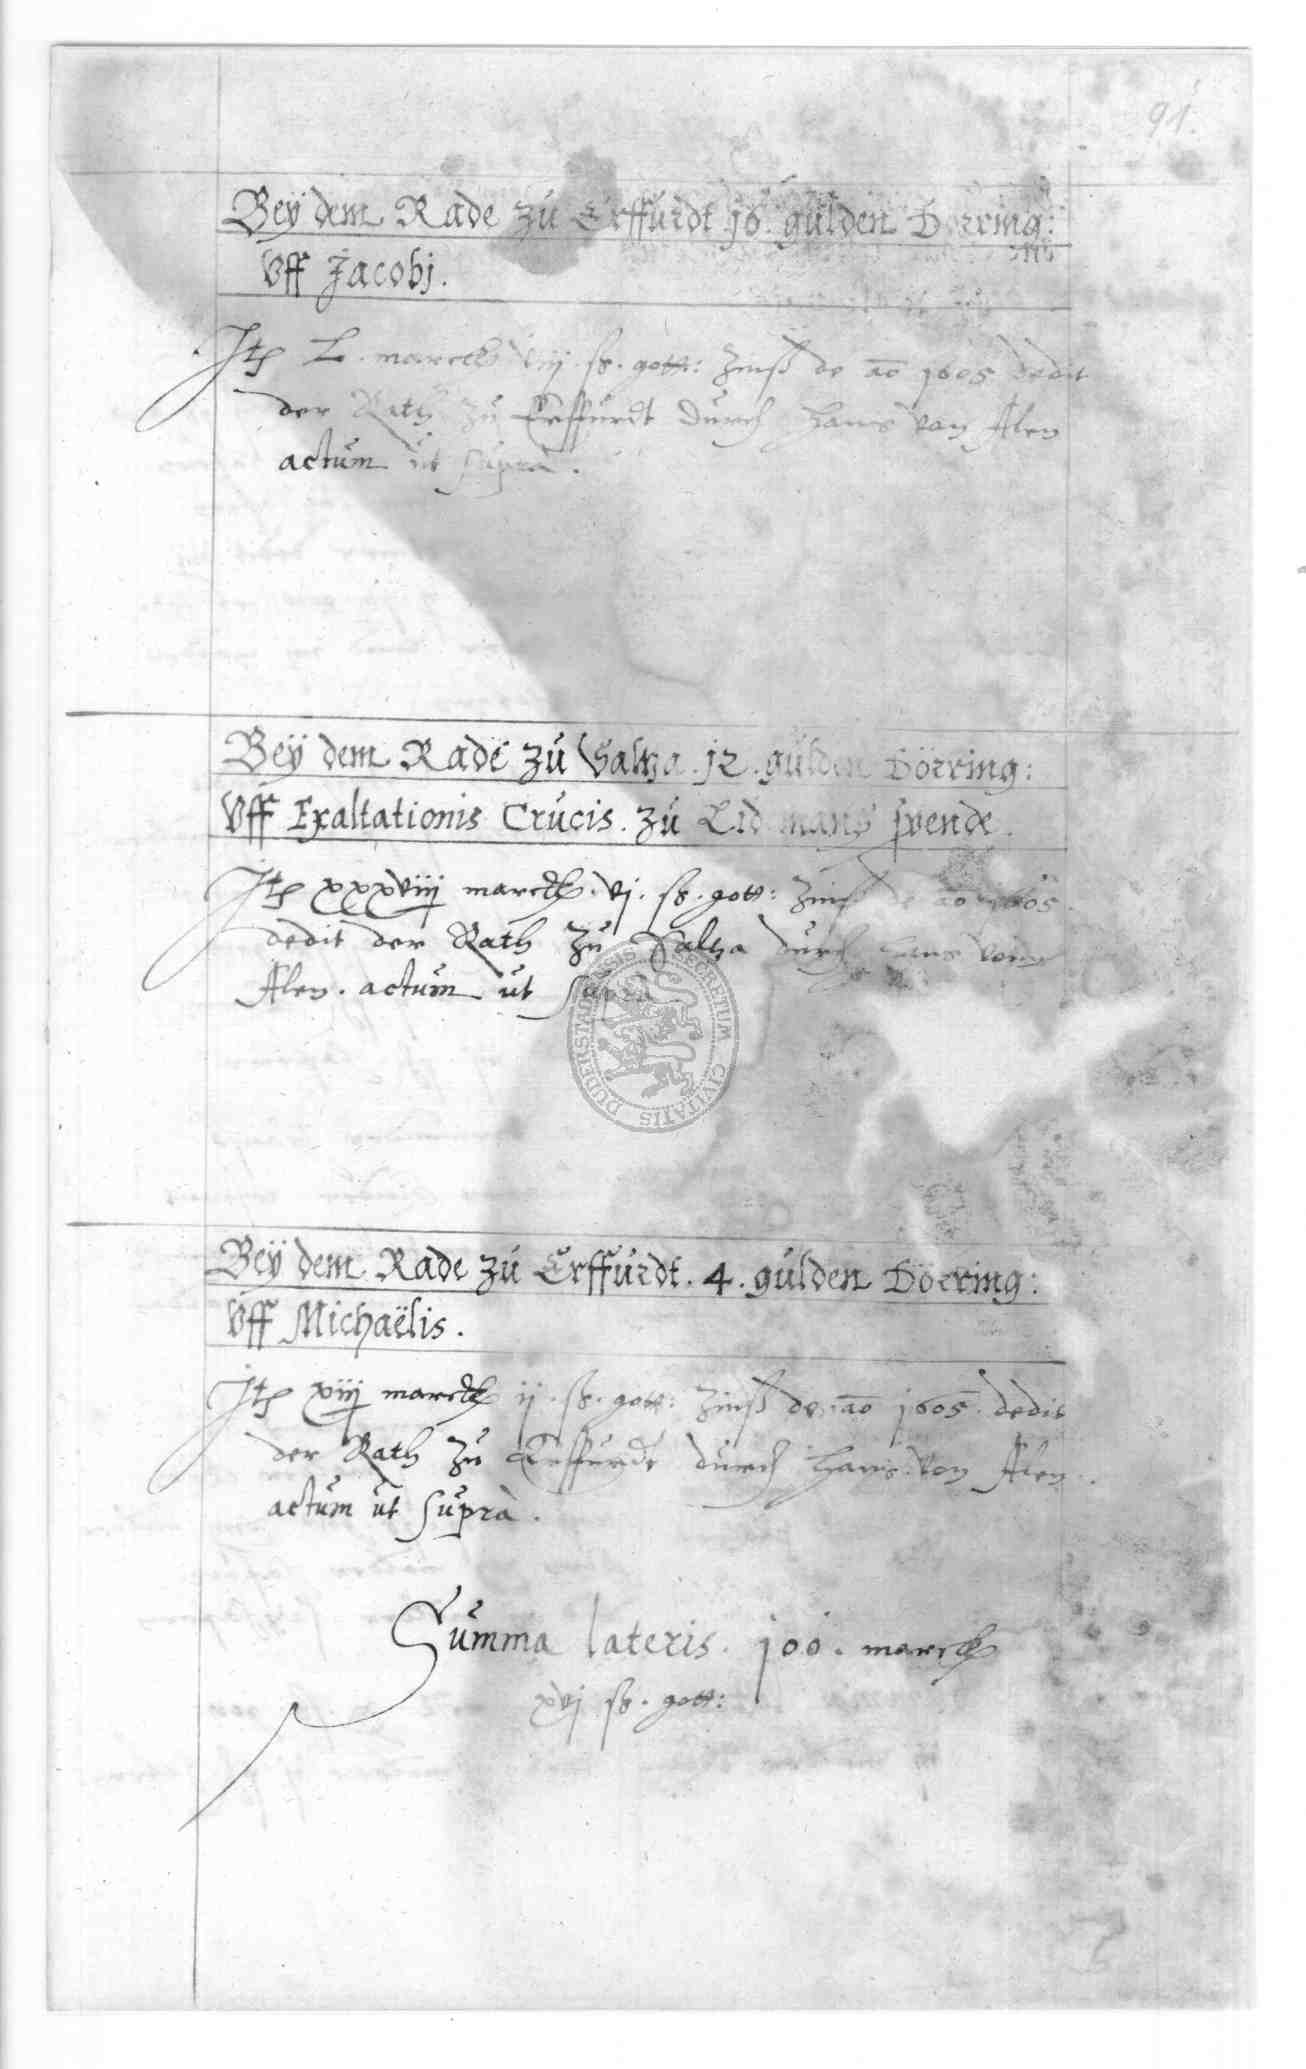 91.
Beÿ dem Rade zu Erffurdt 16. gulden Dorring:
Uff Jacobj.
Itē L. marck viij. ß. gott: Zinß de aō 1605 dedit
der Rath zu Erffurdt durch Hans von Alen
actum ut supra.
Beÿ dem Rade zu Saltza. 12. gulden Dörring:
Uff Exaltationis Crucis. zu mans spende.
Itē xxxviij marck. vj. ß. gott: Zinß de aō 1605
dedit der Rath zu Saltza durch Hans von
Alen. actum ut supra
DUDERSTADENSIS SECRETUM CIVITATIS
Beÿ dem Rade zu Erffurdt. 4. gulden Dörring:
Uff Michaëlis.
Itē xiij marck ij. ß. gott: Zinß de aō 1605. dedit
der Rath zu Erffurdt durch Hans von Alen.
actum ut suprà.
Summa lateris. 101. marck
xvj ß. gott: